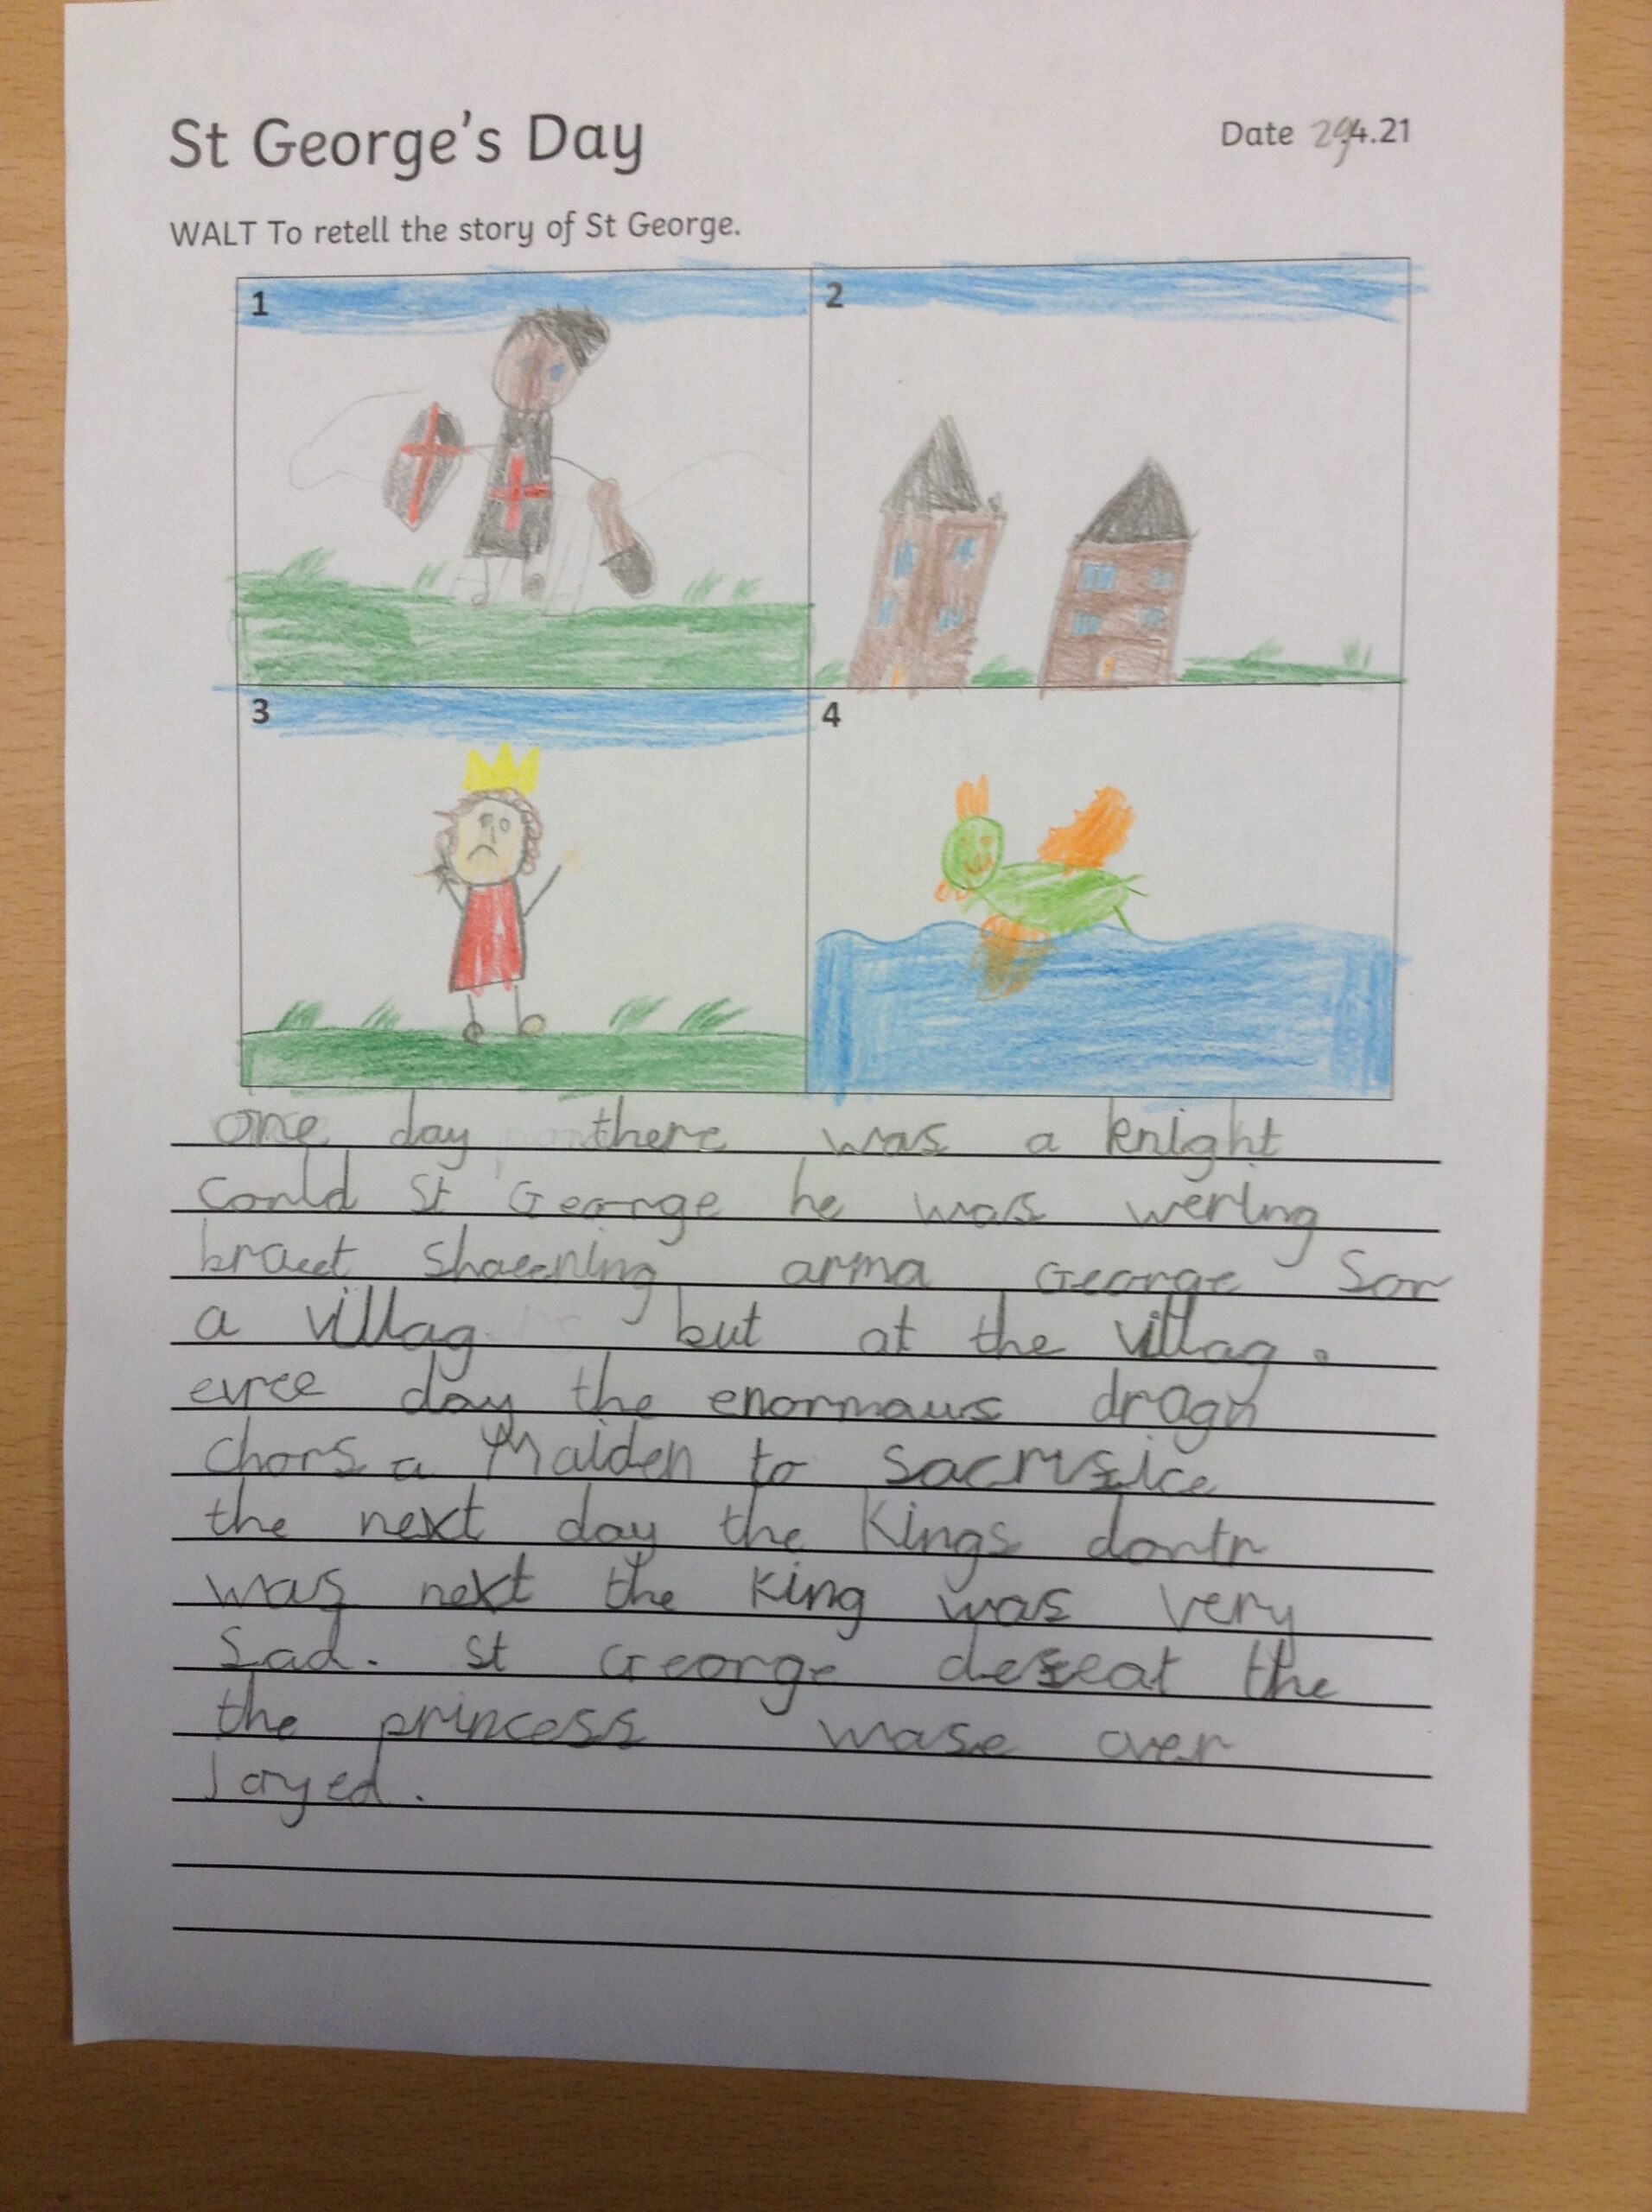 St George's Day
Date 29.4.21
WALT To retell the story of St George.
1
2
3
4
one day there was a knight
Could St George he was werlng
braeet shaeening arma George Sor
a villag but at the villag.
evree day the enormaus dragn
chors a Maiden to sacrifice
the next day the Kings dortr
was next the king was very
Sad. St George defeat the
the princess wase over
Joyed.